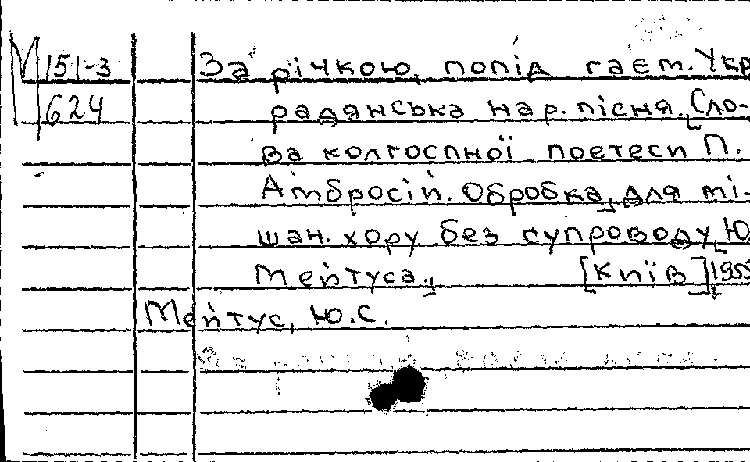 М 151-3 За річкою, попід гаєм. Укр
624 радянська нар. пісня. Сло-
ва колгоспної поетеси П.
Амбросій. Обробка для мі-
шан. хору без супроводу Ю
Мейтуса. [Київ] 195
Мейтус, Ю.С.